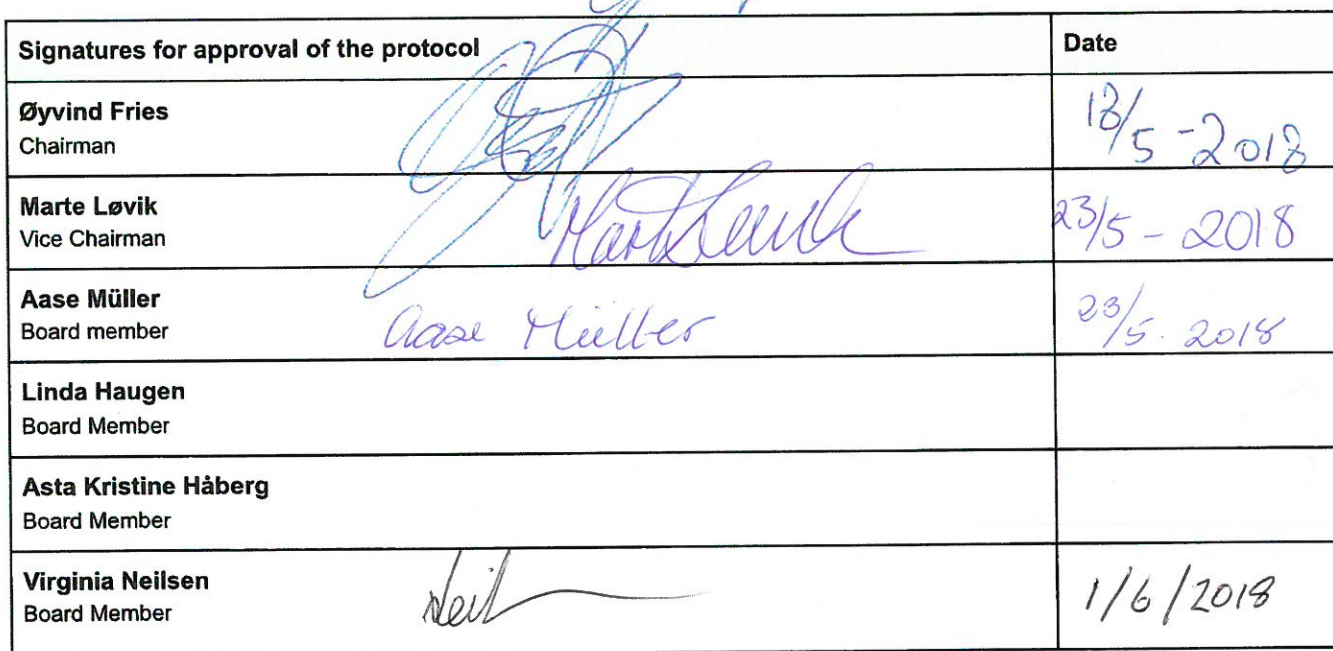 Signatures for approval of the protocol Date
Øyvind Fries
Chairman
/5 - 2018
Marte Løvik
Vice Chairman
23/5 - 2018
Aase Müller
Board member
Aase Müller 23/5. 2018
Linda Haugen
Board Member
Asta Kristine Håberg
Board Member
Virginia Neilsen
Board Member
1/6/2018